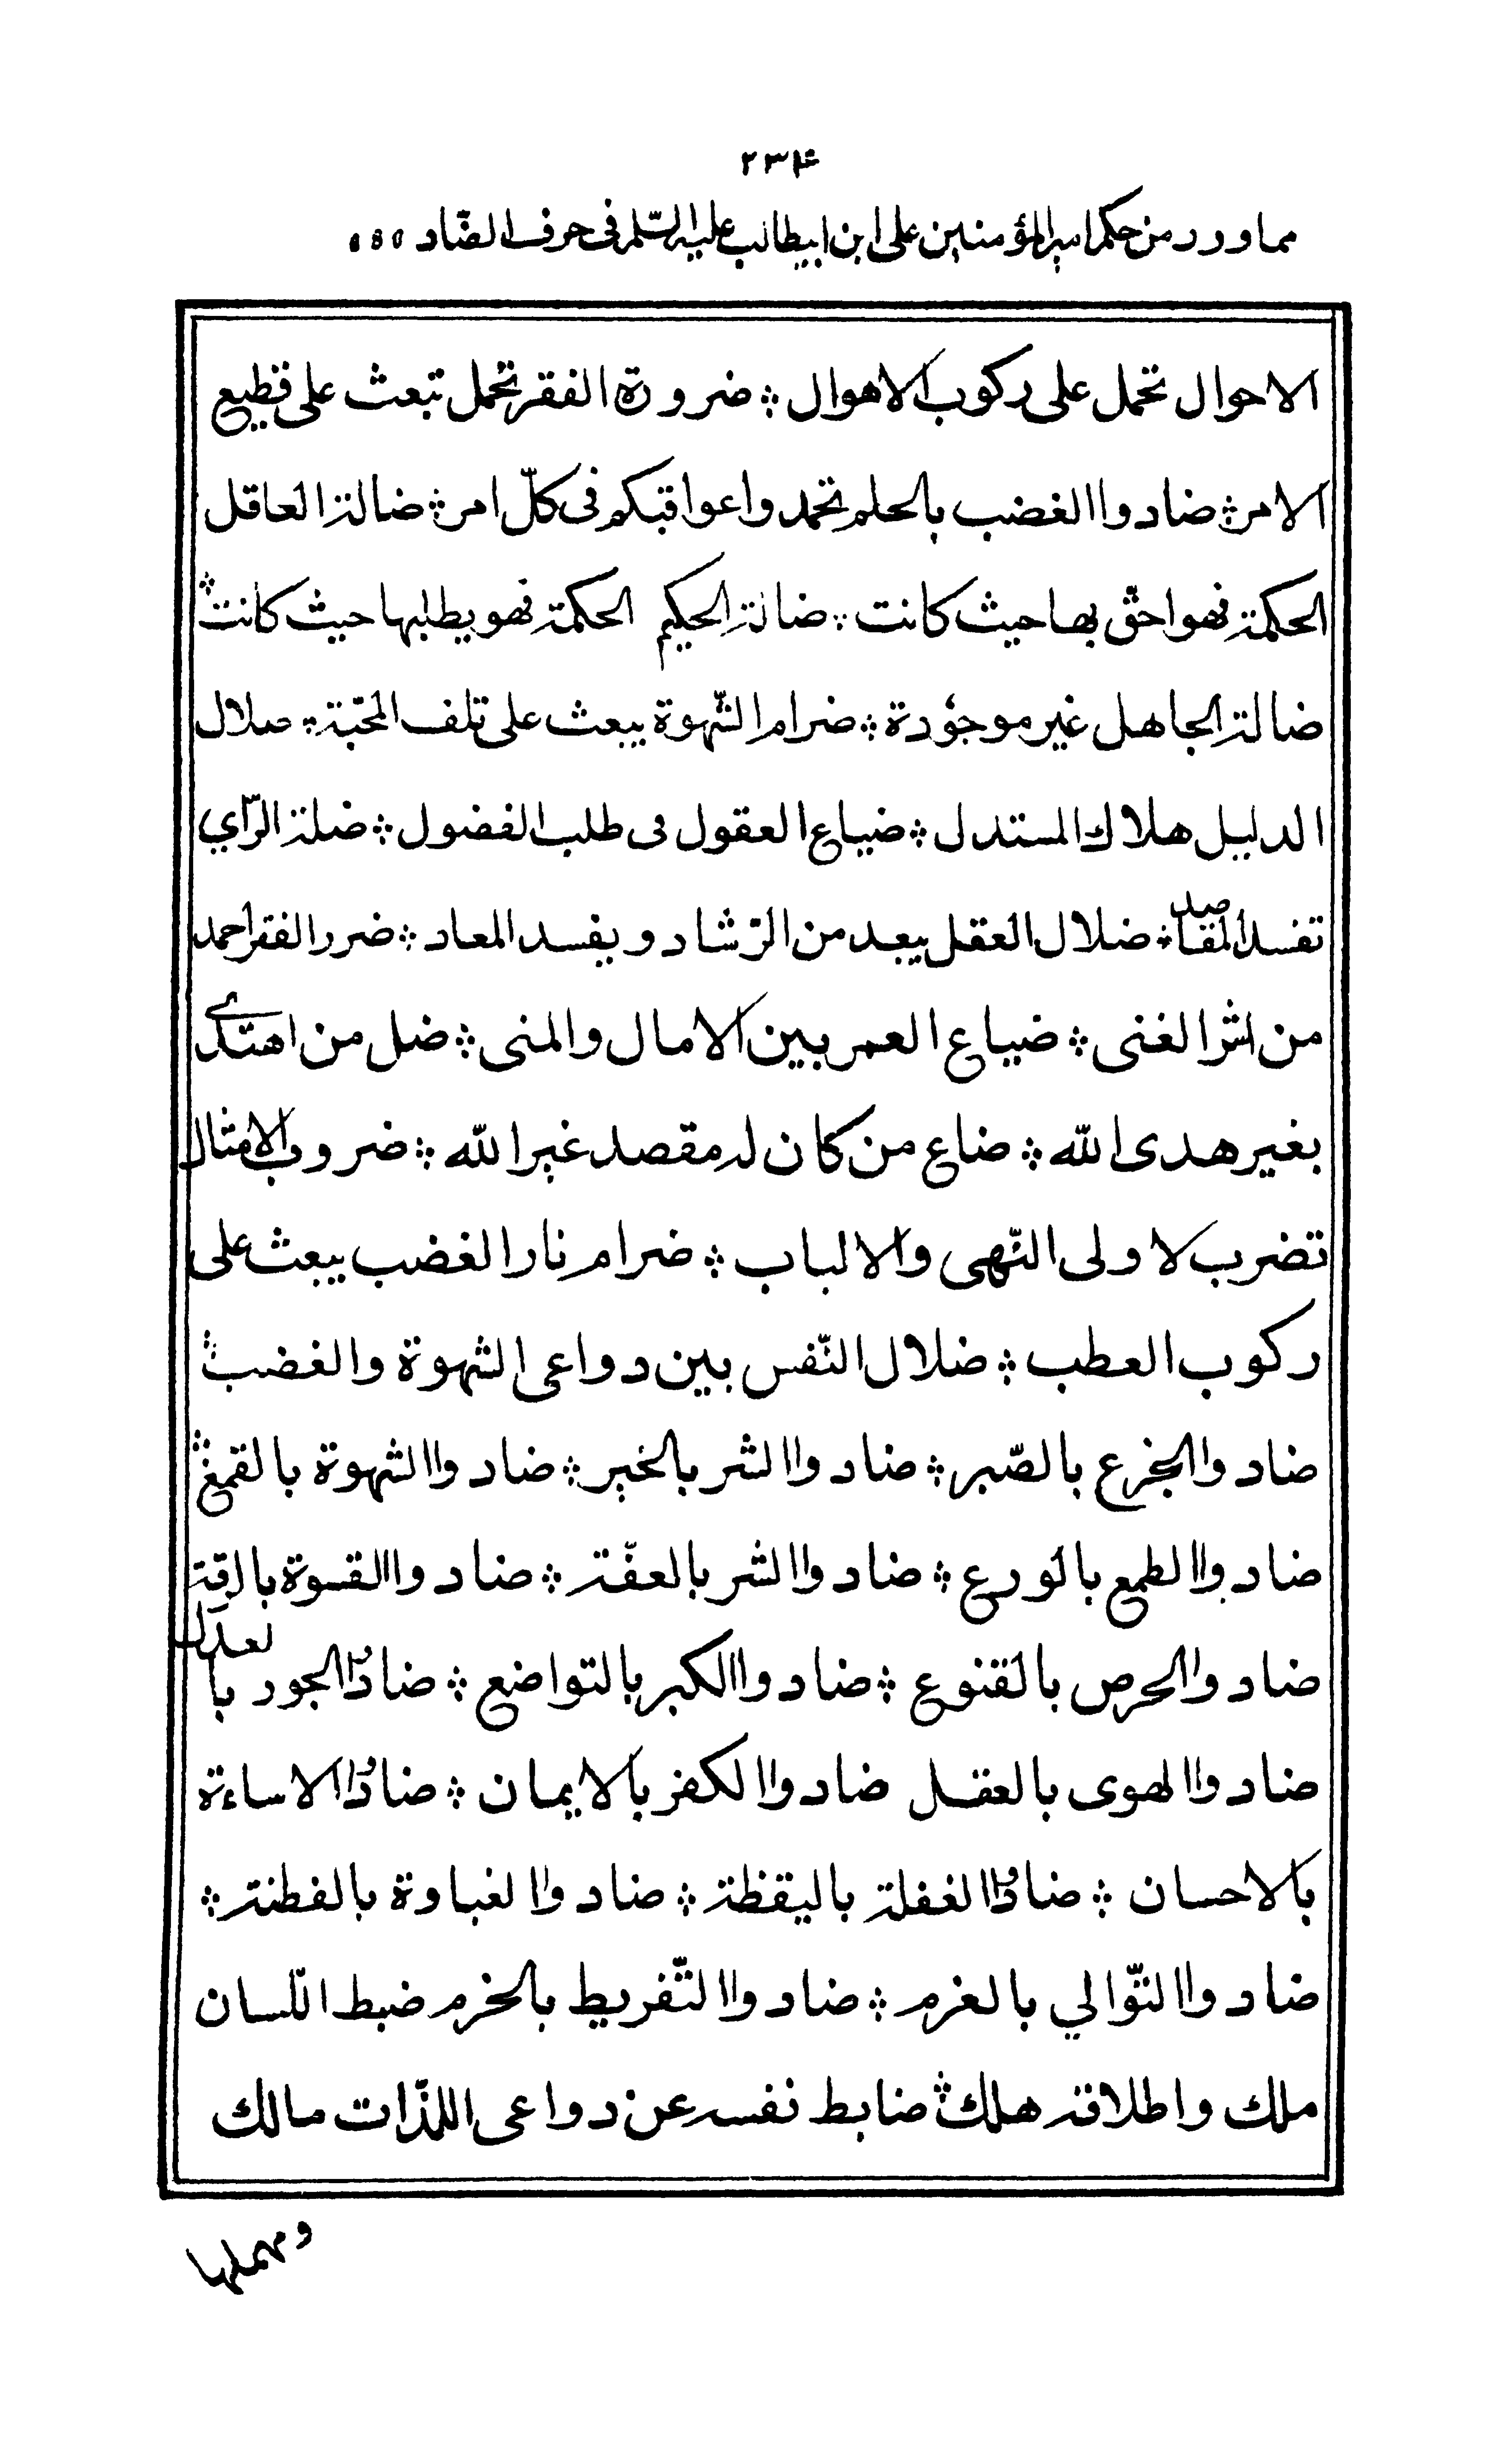 ۲۳۴
مما ورد من حكم امير المؤمنين على ابن ابيطالب عليه السّلم فى حرف الضّاد
الاحوال تحمل على ركوب الاهوال ؞ ضرورة الفقر تحمل تبعث على فظيع
الامر ؞ ضادوا الغضب بالحلم تحمدوا عواقبكم فى كلّ امر ؞ ضالة العاقل
الحكمة فهو احقّ بها حيث كانت ؞ ضالة الحكيم الحكمة فهو يطلبها حيث كانت ؞
ضالة الجاهل غير موجودة ؞ ضرام الشّهوة يبعث على تلف المحبّة ؞ ضلال
الدليل هلاك المستدل ؞ ضياع العقول فى طلب الفضول ؞ ضلة الرّاي
تفسد المقاصد ؞ ضلال العقل يبعد من الرّشاد ويفسد المعاد ؞ ضرر الفقر احمد
من اشر الغنى ؞ ضياع العمر بين الامال والمنى ؞ ضل من اهتدى
بغير هدى الله ؞ ضاع من كان له مقصد غير الله ؞ ضروب الامثال
تضرب لاولى النّهى والالباب ؞ ضرام نار الغضب يبعث على
ركوب العطب ؞ ضلال النّفس بين دواعى الشهوة والغضب ؞
ضادوا الجزع بالصّبر ؞ ضادوا الشر بالخير ؞ ضادوا الشهوة بالقمع ؞
ضادوا الطمع بالورع ؞ ضادوا الشر بالعفّة ؞ ضادوا القسوة بالرقة
ضادوا الحرص بالقنوع ؞ ضادوا الكبر بالتواضع ؞ ضادّوا الجور بالعدل
ضادوا الهوى بالعقل ضادوا الكفر بالايمان ؞ ضادّوا الاساءة
بالاحسان ؞ ضادّوا الغفلة باليقظة ؞ ضادوا الغباوة بالفطنة ؞
ضادوا التّوالي بالعزم ؞ ضادوا التّفريط بالحزم ضبط اللّسان
ملك واطلاقه هلك ؞ ضابط نفسه عن دواعى اللذّات مالك
ومهملها